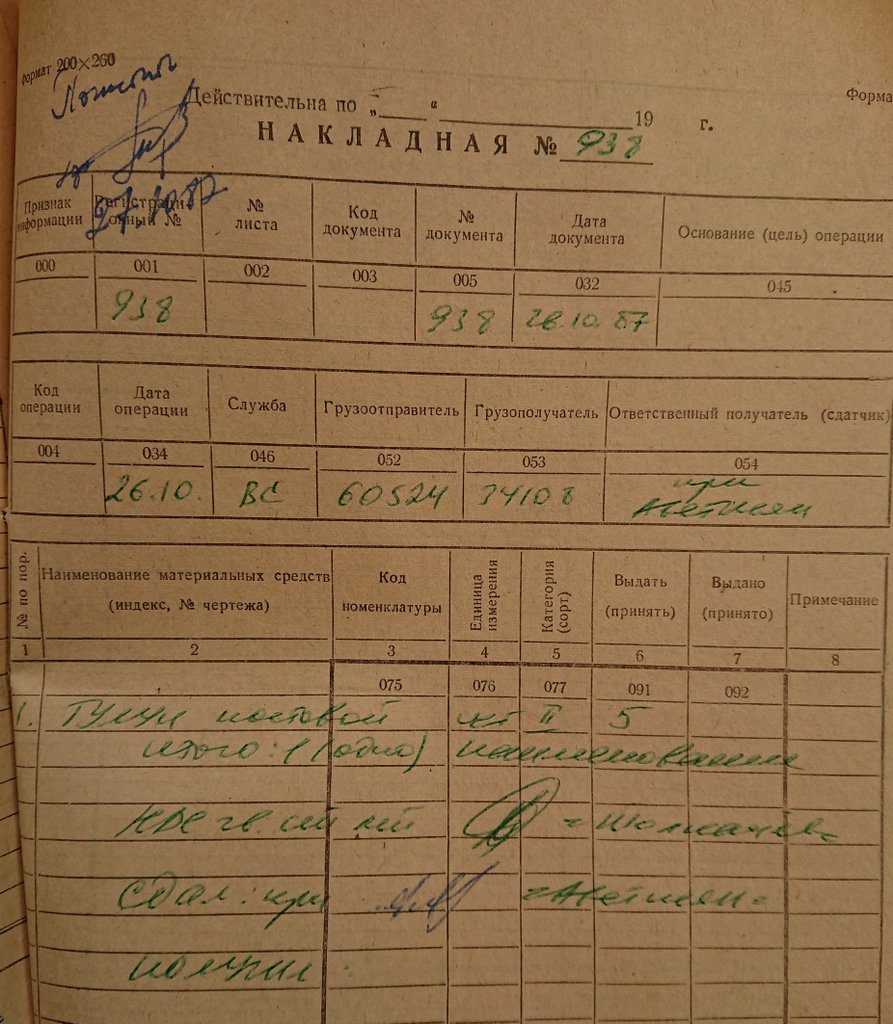 Формат 200×260
Действительна по „ “ 19 г.
Форма
НАКЛАДНАЯ № 938
27.10.87
Признак информации Регистрационный № № листа Код документа № документа Дата документа Основание (цель) операции
000 001 002 003 005 032 045
938 938 26.10.87
Код операции Дата операции Служба Грузоотправитель Грузополучатель Ответственный получатель (сдатчик)
004 034 046 052 053 054
26.10. ВС 60524 34108 пр-к Аветисян
№ по пор. Наименование материальных средств (индекс, № чертежа) Код номенклатуры Единица измерения Категория (сорт) Выдать (принять) Выдано (принято) Примечание
1 2 3 4 5 6 7 8
075 076 077 091 092
1. Тулуп постовой шт II 5
Итого: 1 (одно) наименование
Сдал: пр-к =Аветисян=
Получил: